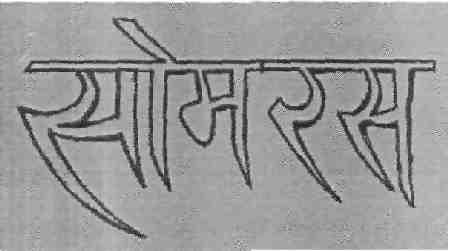 सोमरस